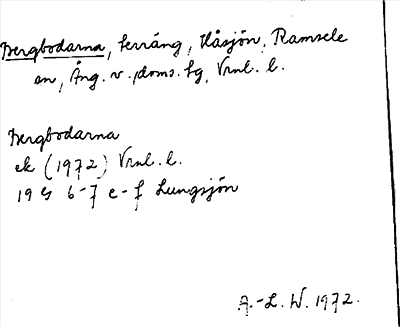 Bergbodarna, terräng, Håsjön, Ramsele
sn, Ång. v. doms. hg, Vrnl. l.
Bergbodarna
ek (1972) Vrnl. l.
19 G 6-7 e-f Lungsjön
A.-L. W. 1972.